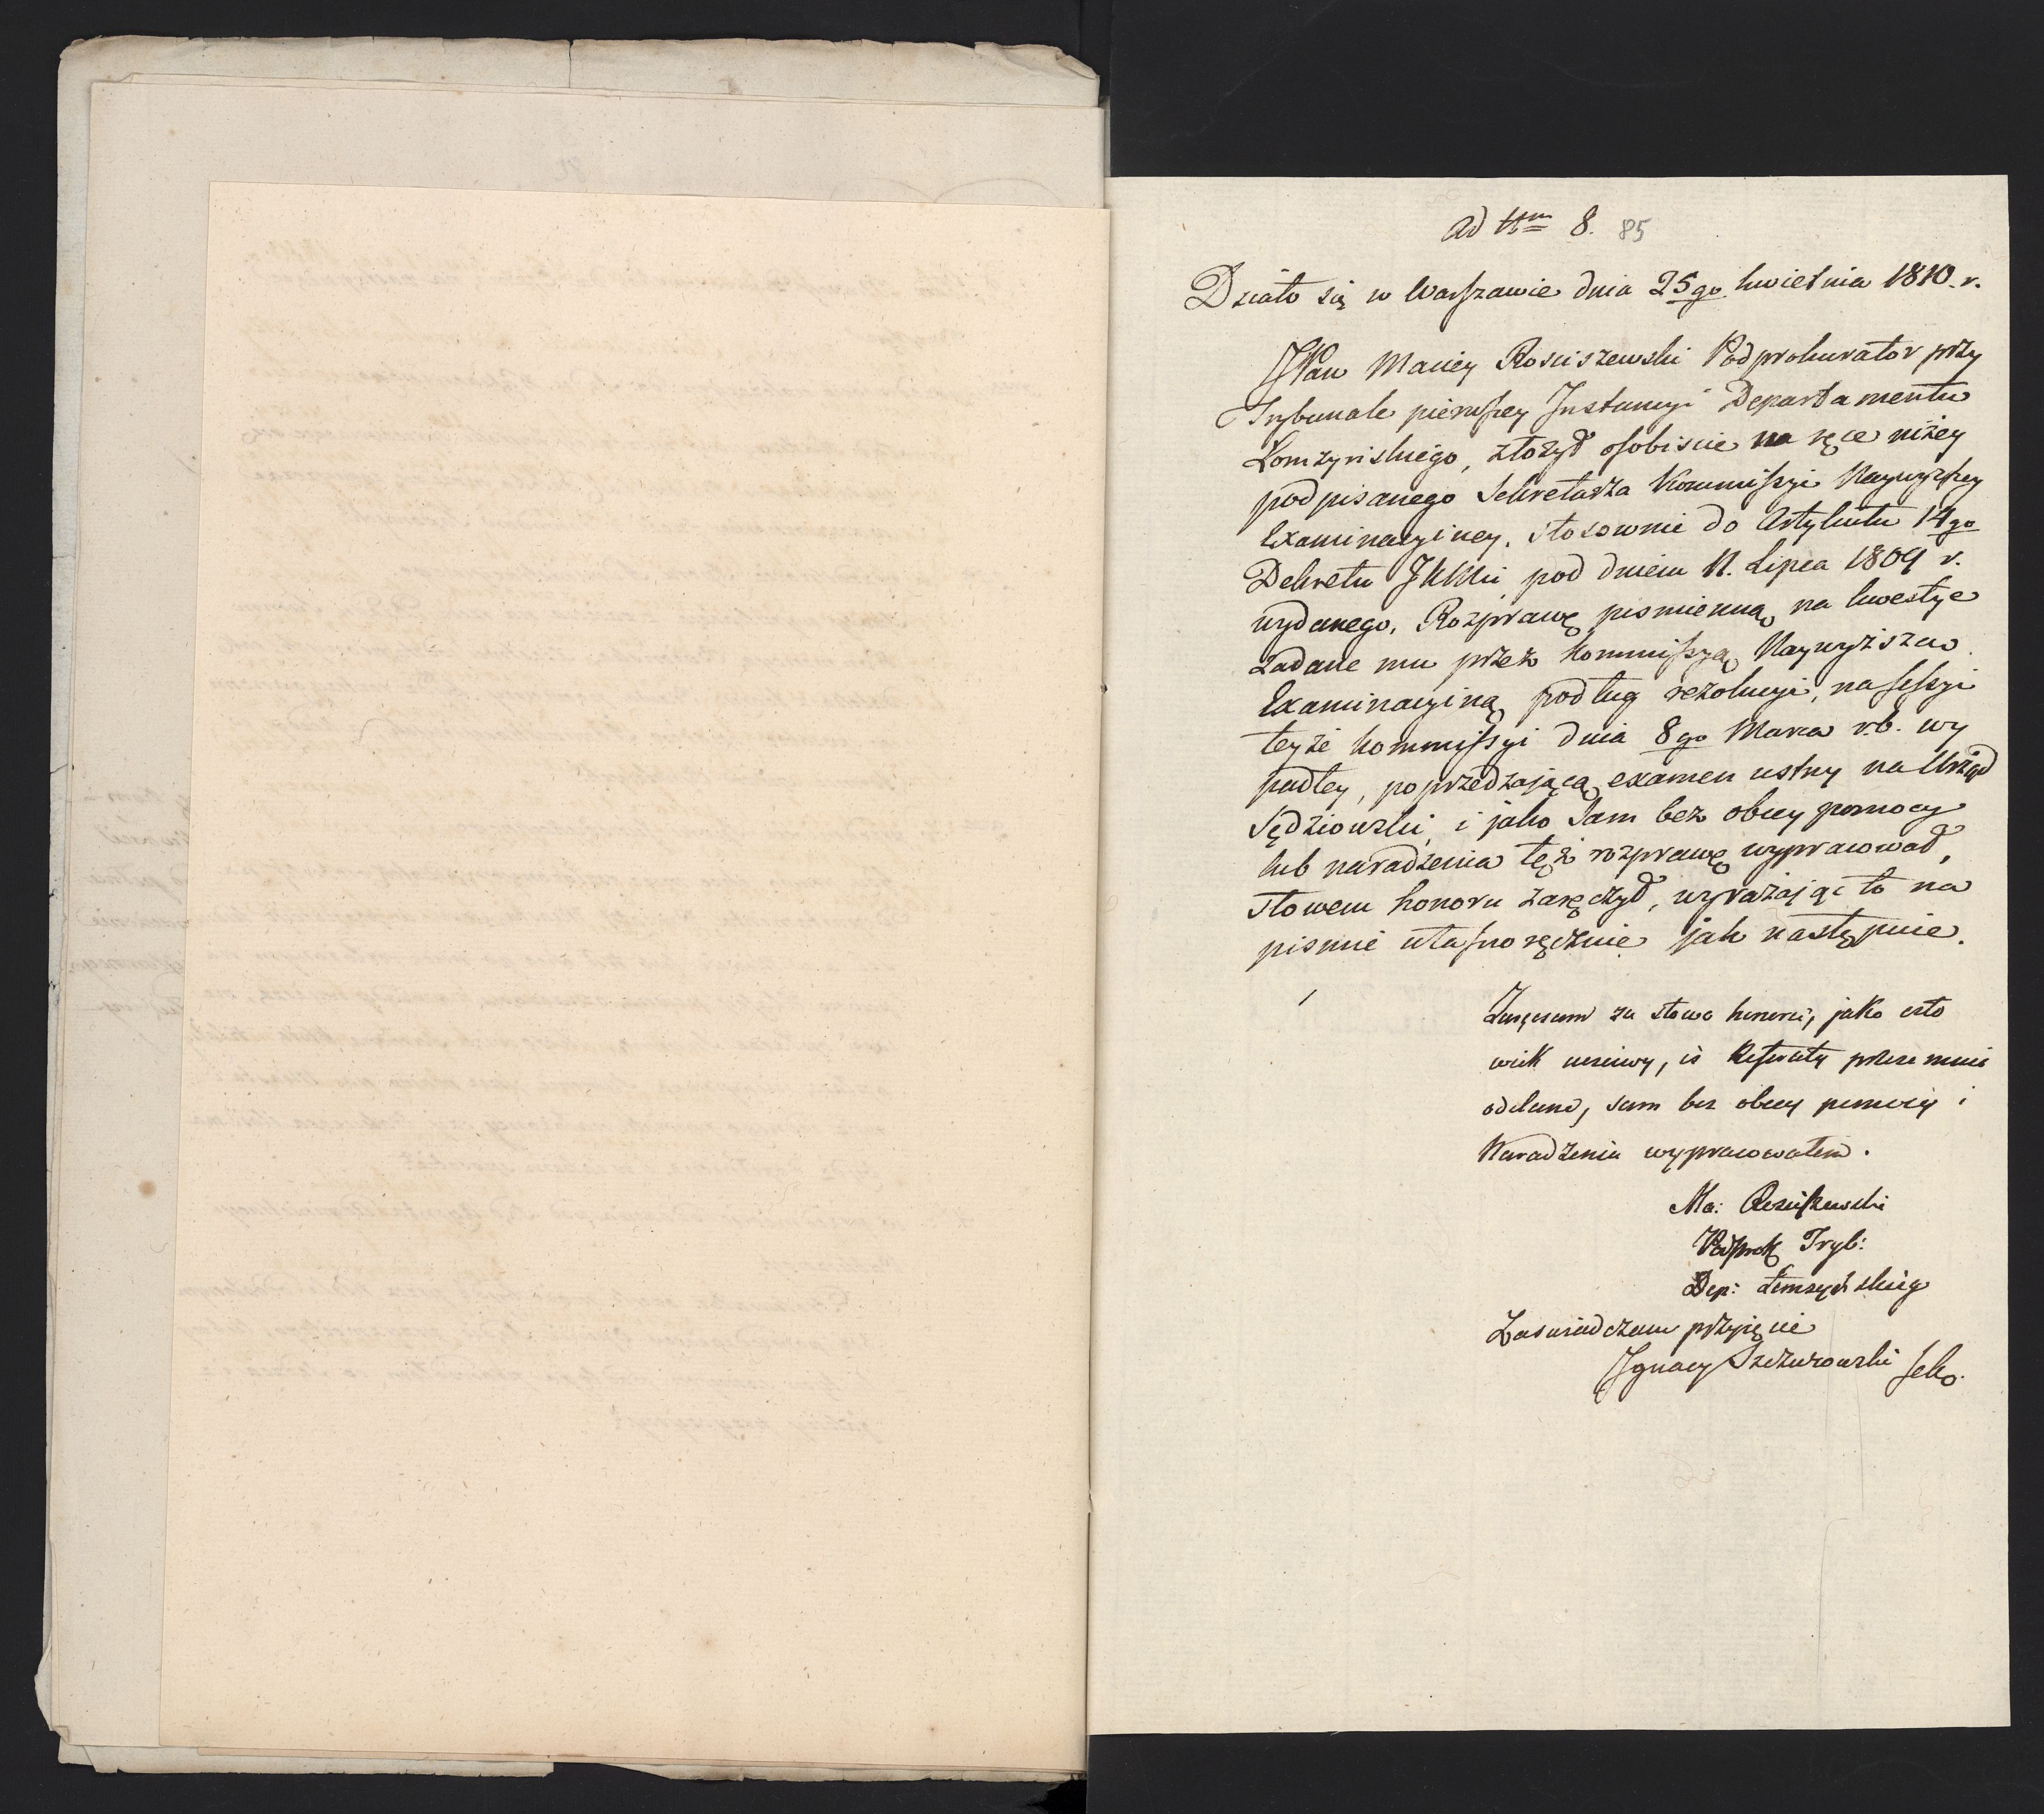 Ad Nm 8. 85
Działo się w Warszawie dnia 25go kwietnia 1810. r.
JPan Maciey Rosciszewski Podprokurator przy
Trybunale pierwszey Instancyi Departamentu
Łomzynskiego, złożył osobiscie na ręce niżey
podpisanego Sekretarza Kommissyi Naywyższey
Examinacyiney, stosownie do Artykułu 14go
Dekretu JKMci pod dniem 11. Lipca 1809 r.
wydanego, Rozprawę pismienną na kwestye
zadane mu przez Kommissyą Naywyższą
Examinacyiną podług rezolucyi, na sessyi
teyże kommissyi dnia 8go Marca r.b. wy
padłey, poprzedzającą examen ustny na Urząd
Sędziowski, i jako sam bez obcey pomocy
lub naradzenia tęż rozprawę wypracował,
słowem honoru zaręczył, wyrażając to na
pismie własnoręcznie jak następuie.
Zaręczam za słowo honoru, jako czło
wiek uczciwy, iż Referaty przeze mnie
oddane, sam bez obcey pomocy i
Naradzenia wypracowałem.
Ma: Rosciszewski
Podprok Tryb:
Dep: Łomzynskieg
Zaswiadczam przyięcie
Ignacy Szczurowski Sekr.